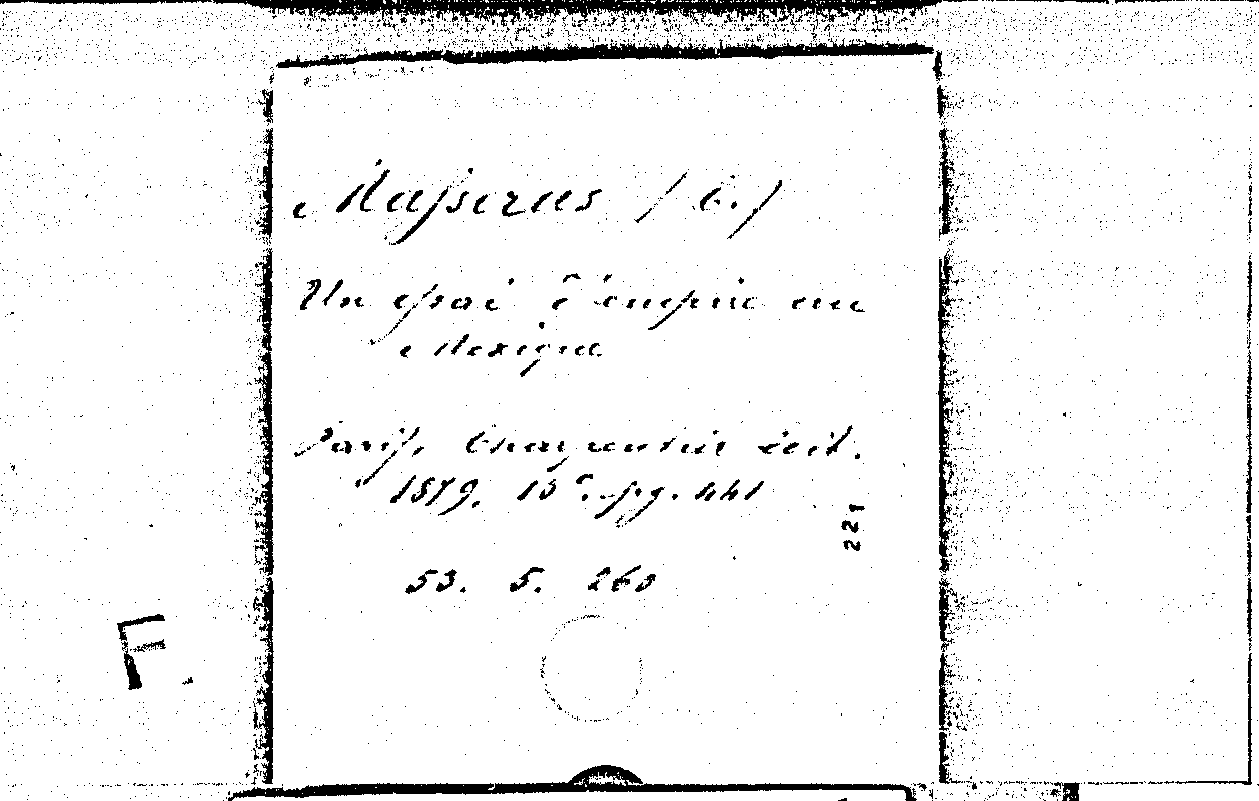 Masseras / E. /
Un essai d'empire au
Mexique
Paris, Charpentier édit.
1879. 16°. pg. 441
53. 5. 260
221
F.